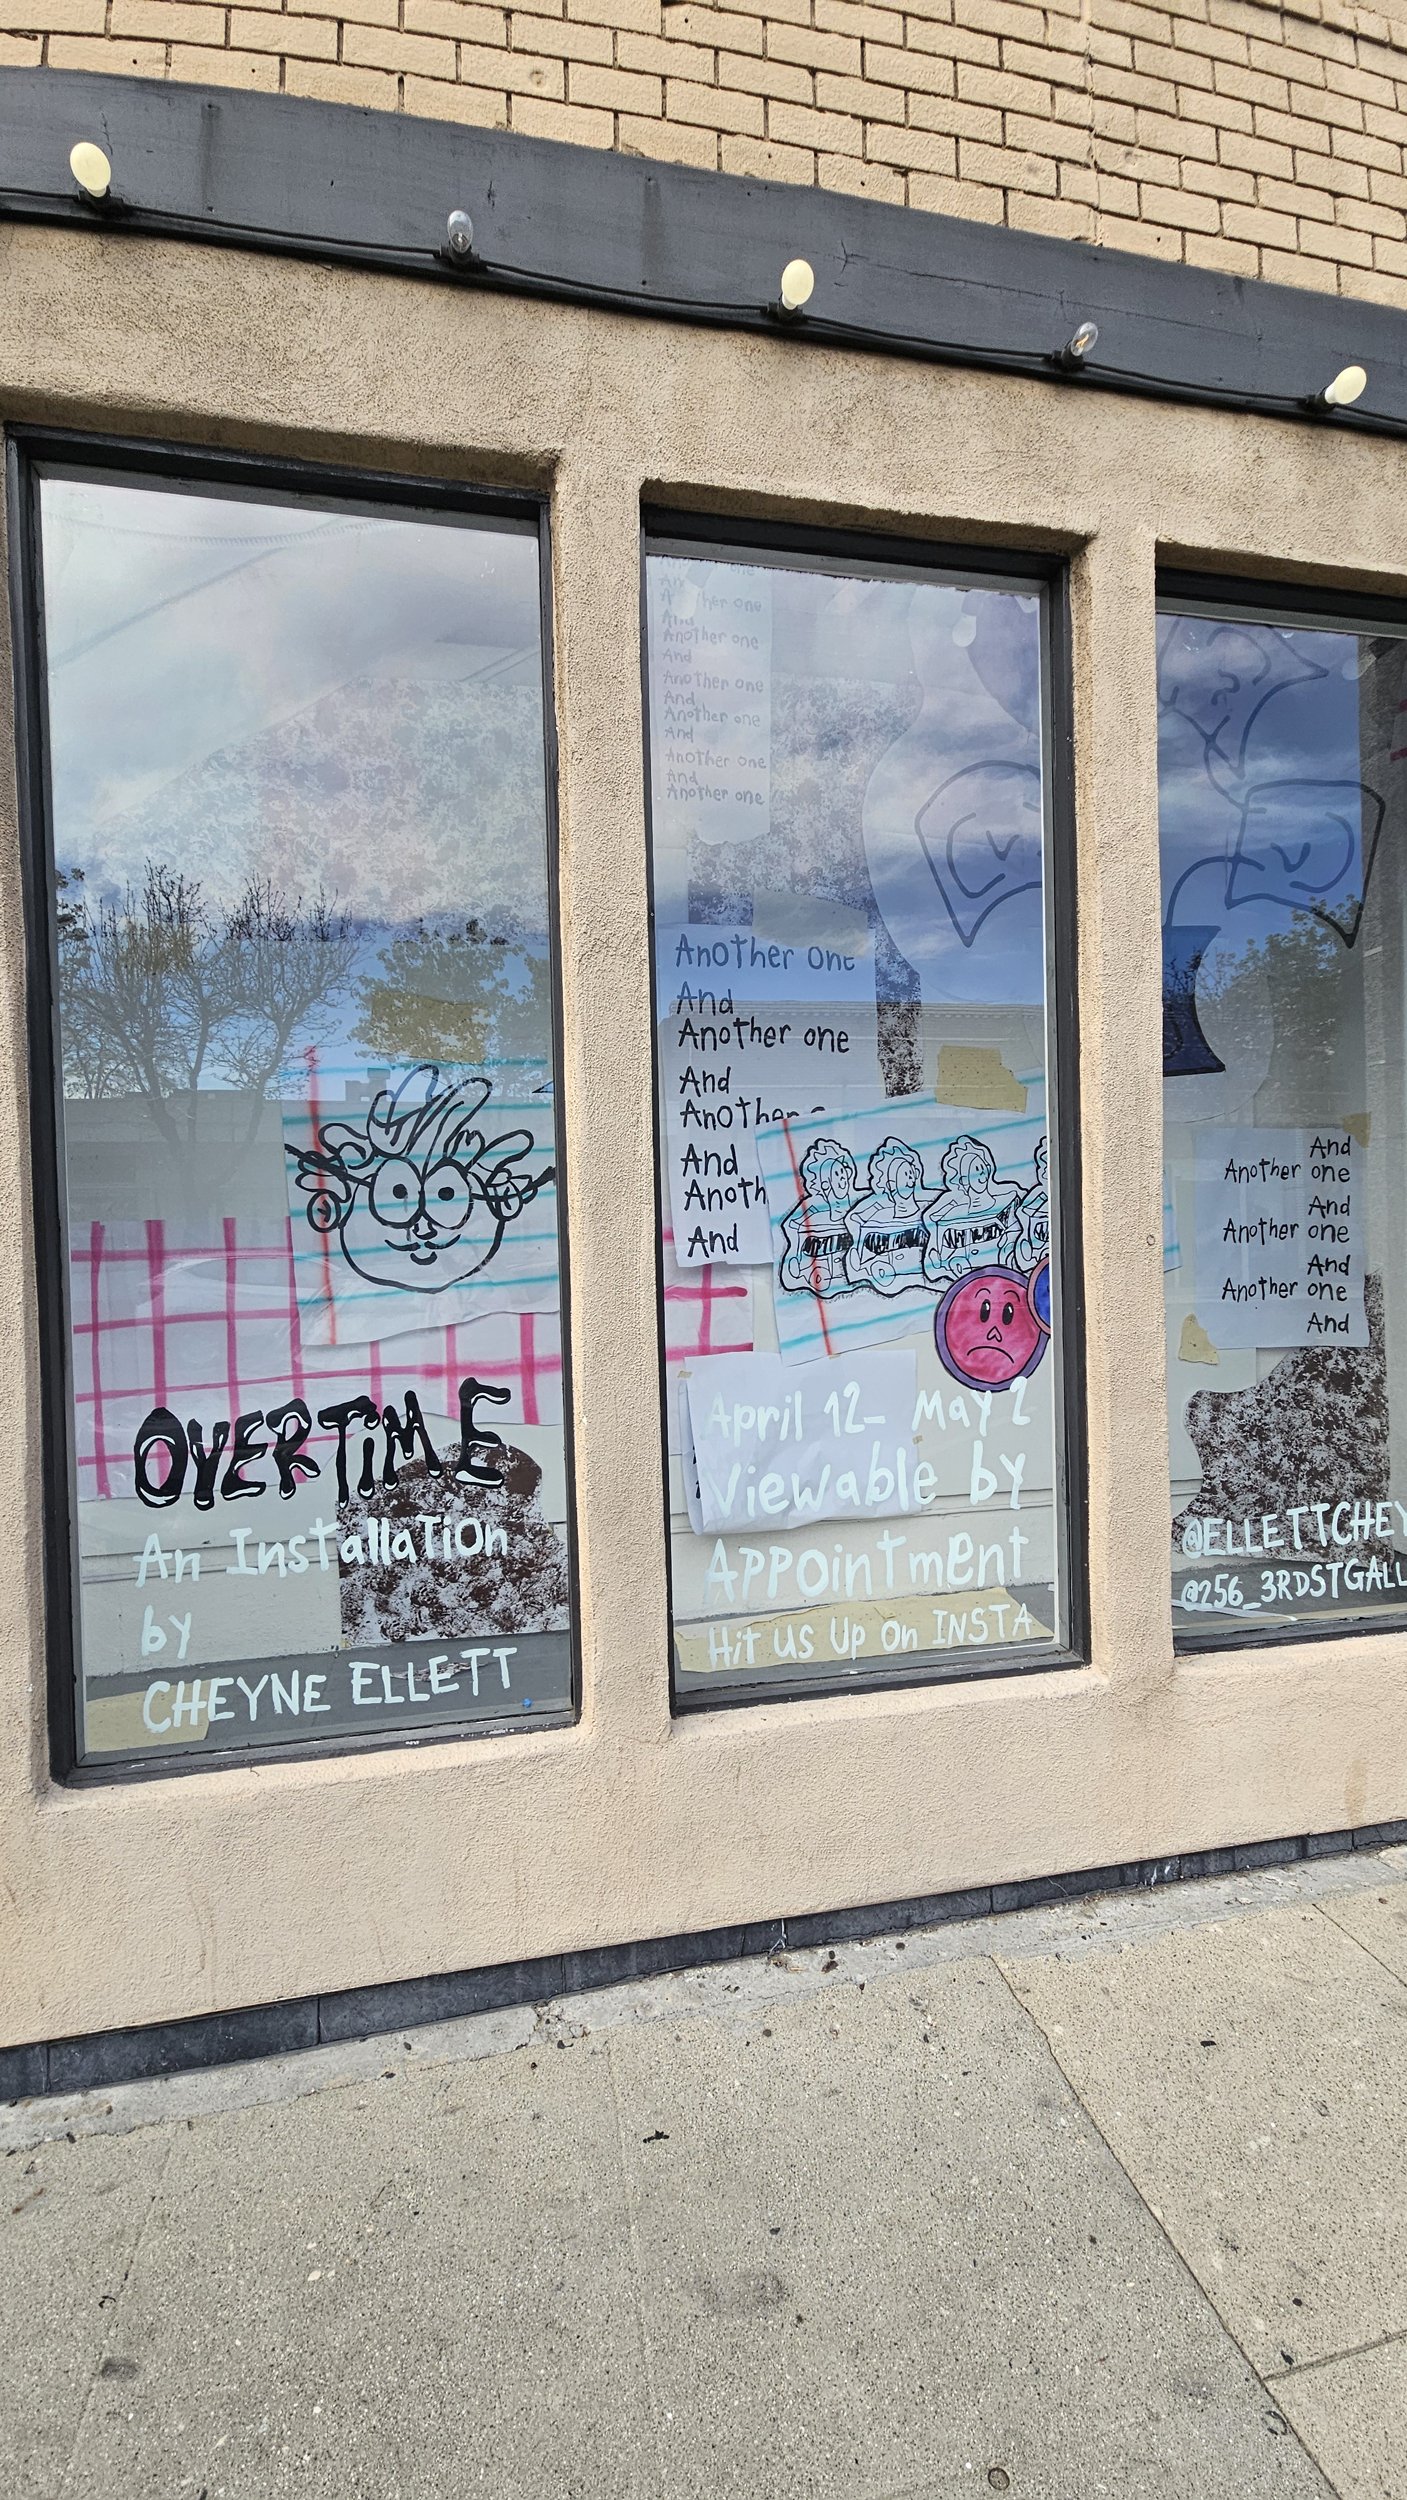 OVERTIME
An Installation
by
CHEYNE ELLETT
Another one
And
Another one
And
Another one
And
Another one
And
Another one
And
Another one
Another one
And
Another one
And
Another
And
Anoth
And
April 12- May 2
Viewable by
Appointment
Hit us Up On INSTA
And
Another one
And
Another one
And
Another one
And
@ELLETTCHEY
@256_3RDSTGALL